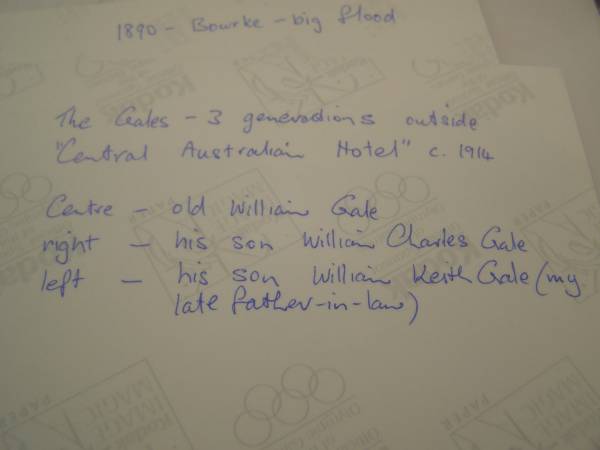 1890 - Bourke - big flood
The Gales - 3 generations outside
"Central Australian Hotel" c. 1914
Centre - old William Gale
right - his son William Charles Gale
left - his son William Keith Gale (my
late father-in-law)
Kodak
PAPER
IMAGIC
PAPER